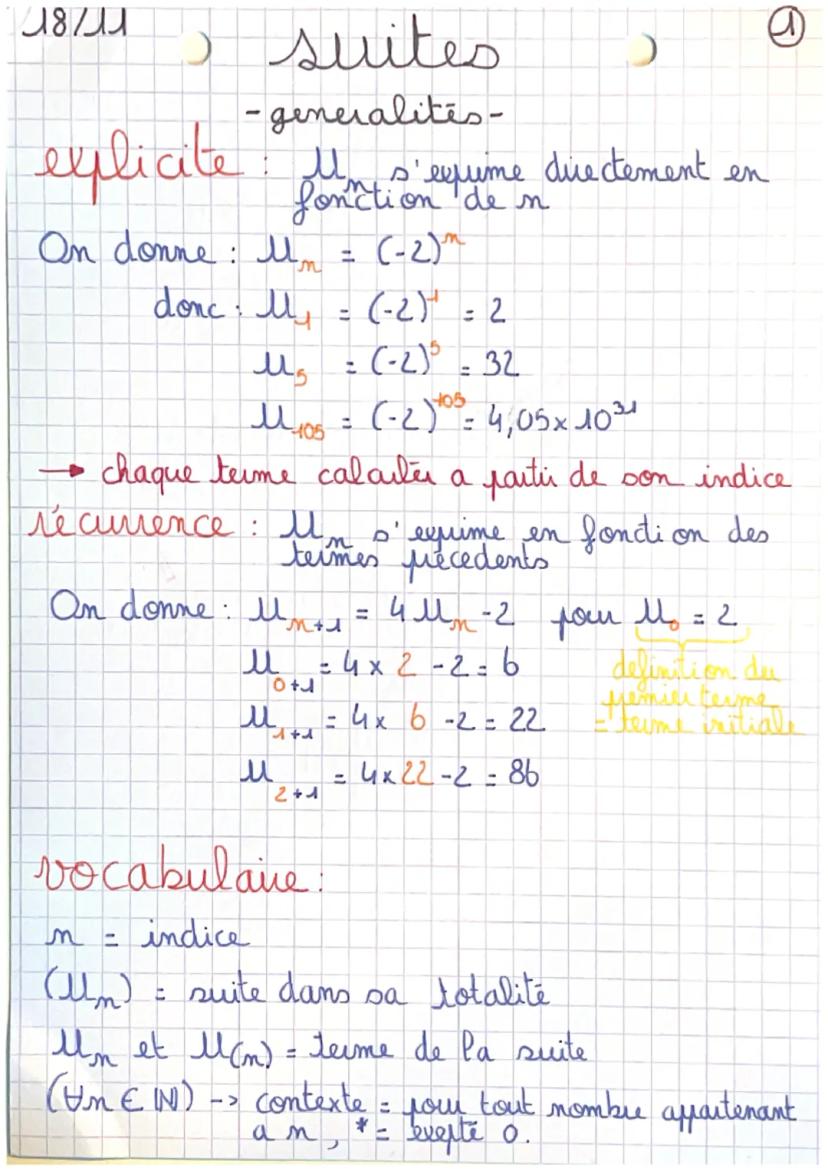 18/11
①
suites
-generalités-
explicite : Un s'exprime directement en
fonction de n
On donne : Un = (-2)^n
donc : U1 = (-2)^1 = 2
U5 = (-2)^5 = 32
U105 = (-2)^105 = 4,05x10^31
→ chaque terme calculer a partir de son indice
récurrence : Un s'exprime en fonction des
termes précedents
On donne : Un+1 = 4Un -2 pour U0 = 2
U0+1 = 4 x 2 -2 = 6
definition du
premier terme
= terme initiale
U1+1 = 4x 6 -2 = 22
U2+1 = 4x22 -2 = 86
vocabulaire :
n = indice
(Un) = suite dans sa totalité
Un et U(n) = terme de la suite
(∀n ∈ ℕ) -> contexte = pour tout nombre appartenant
a n, * = exepté 0.